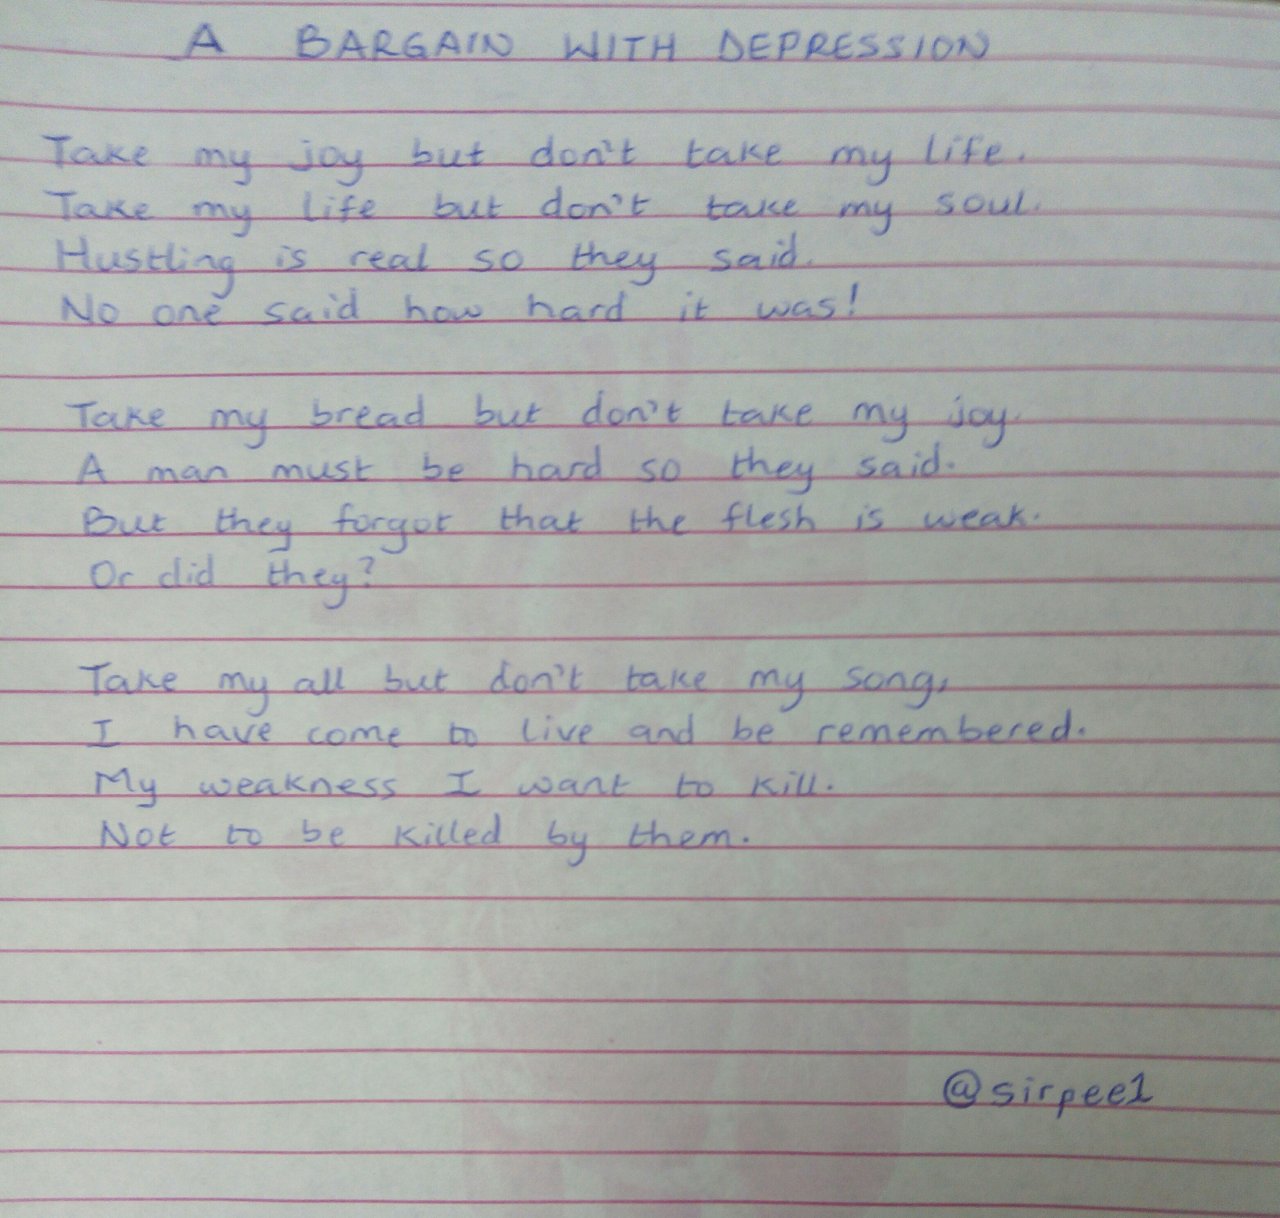 A BARGAIN WITH DEPRESSION
Take my joy but don't take my life.
Take my life but don't take my soul.
Hustling is real so they said.
No one said how hard it was!
Take my bread but don't take my joy.
A man must be hard so they said.
But they forgot that the flesh is weak.
Or did they?
Take my all but don't take my song,
I have come to live and be remembered.
My weakness I want to kill.
Not to be killed by them.
@sirpee1